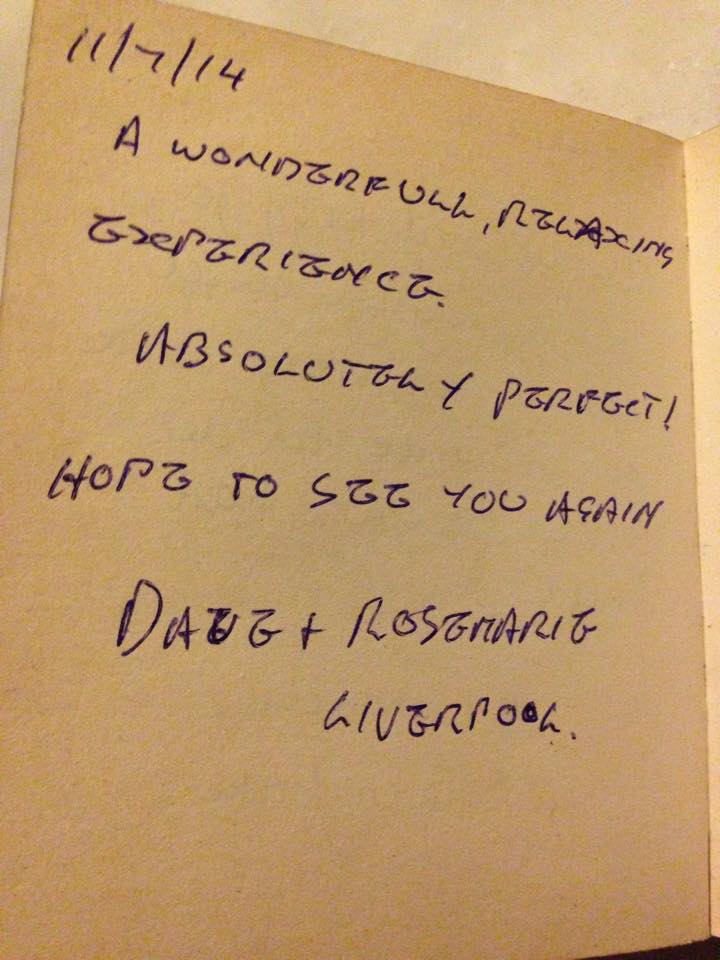 11/7/14
A WONDERFULL, RELAXING
EXPERIENCE.
ABSOLUTELY PERFECT!
HOPE TO SEE YOU AGAIN
DAVE + ROSEMARIE
LIVERPOOL.